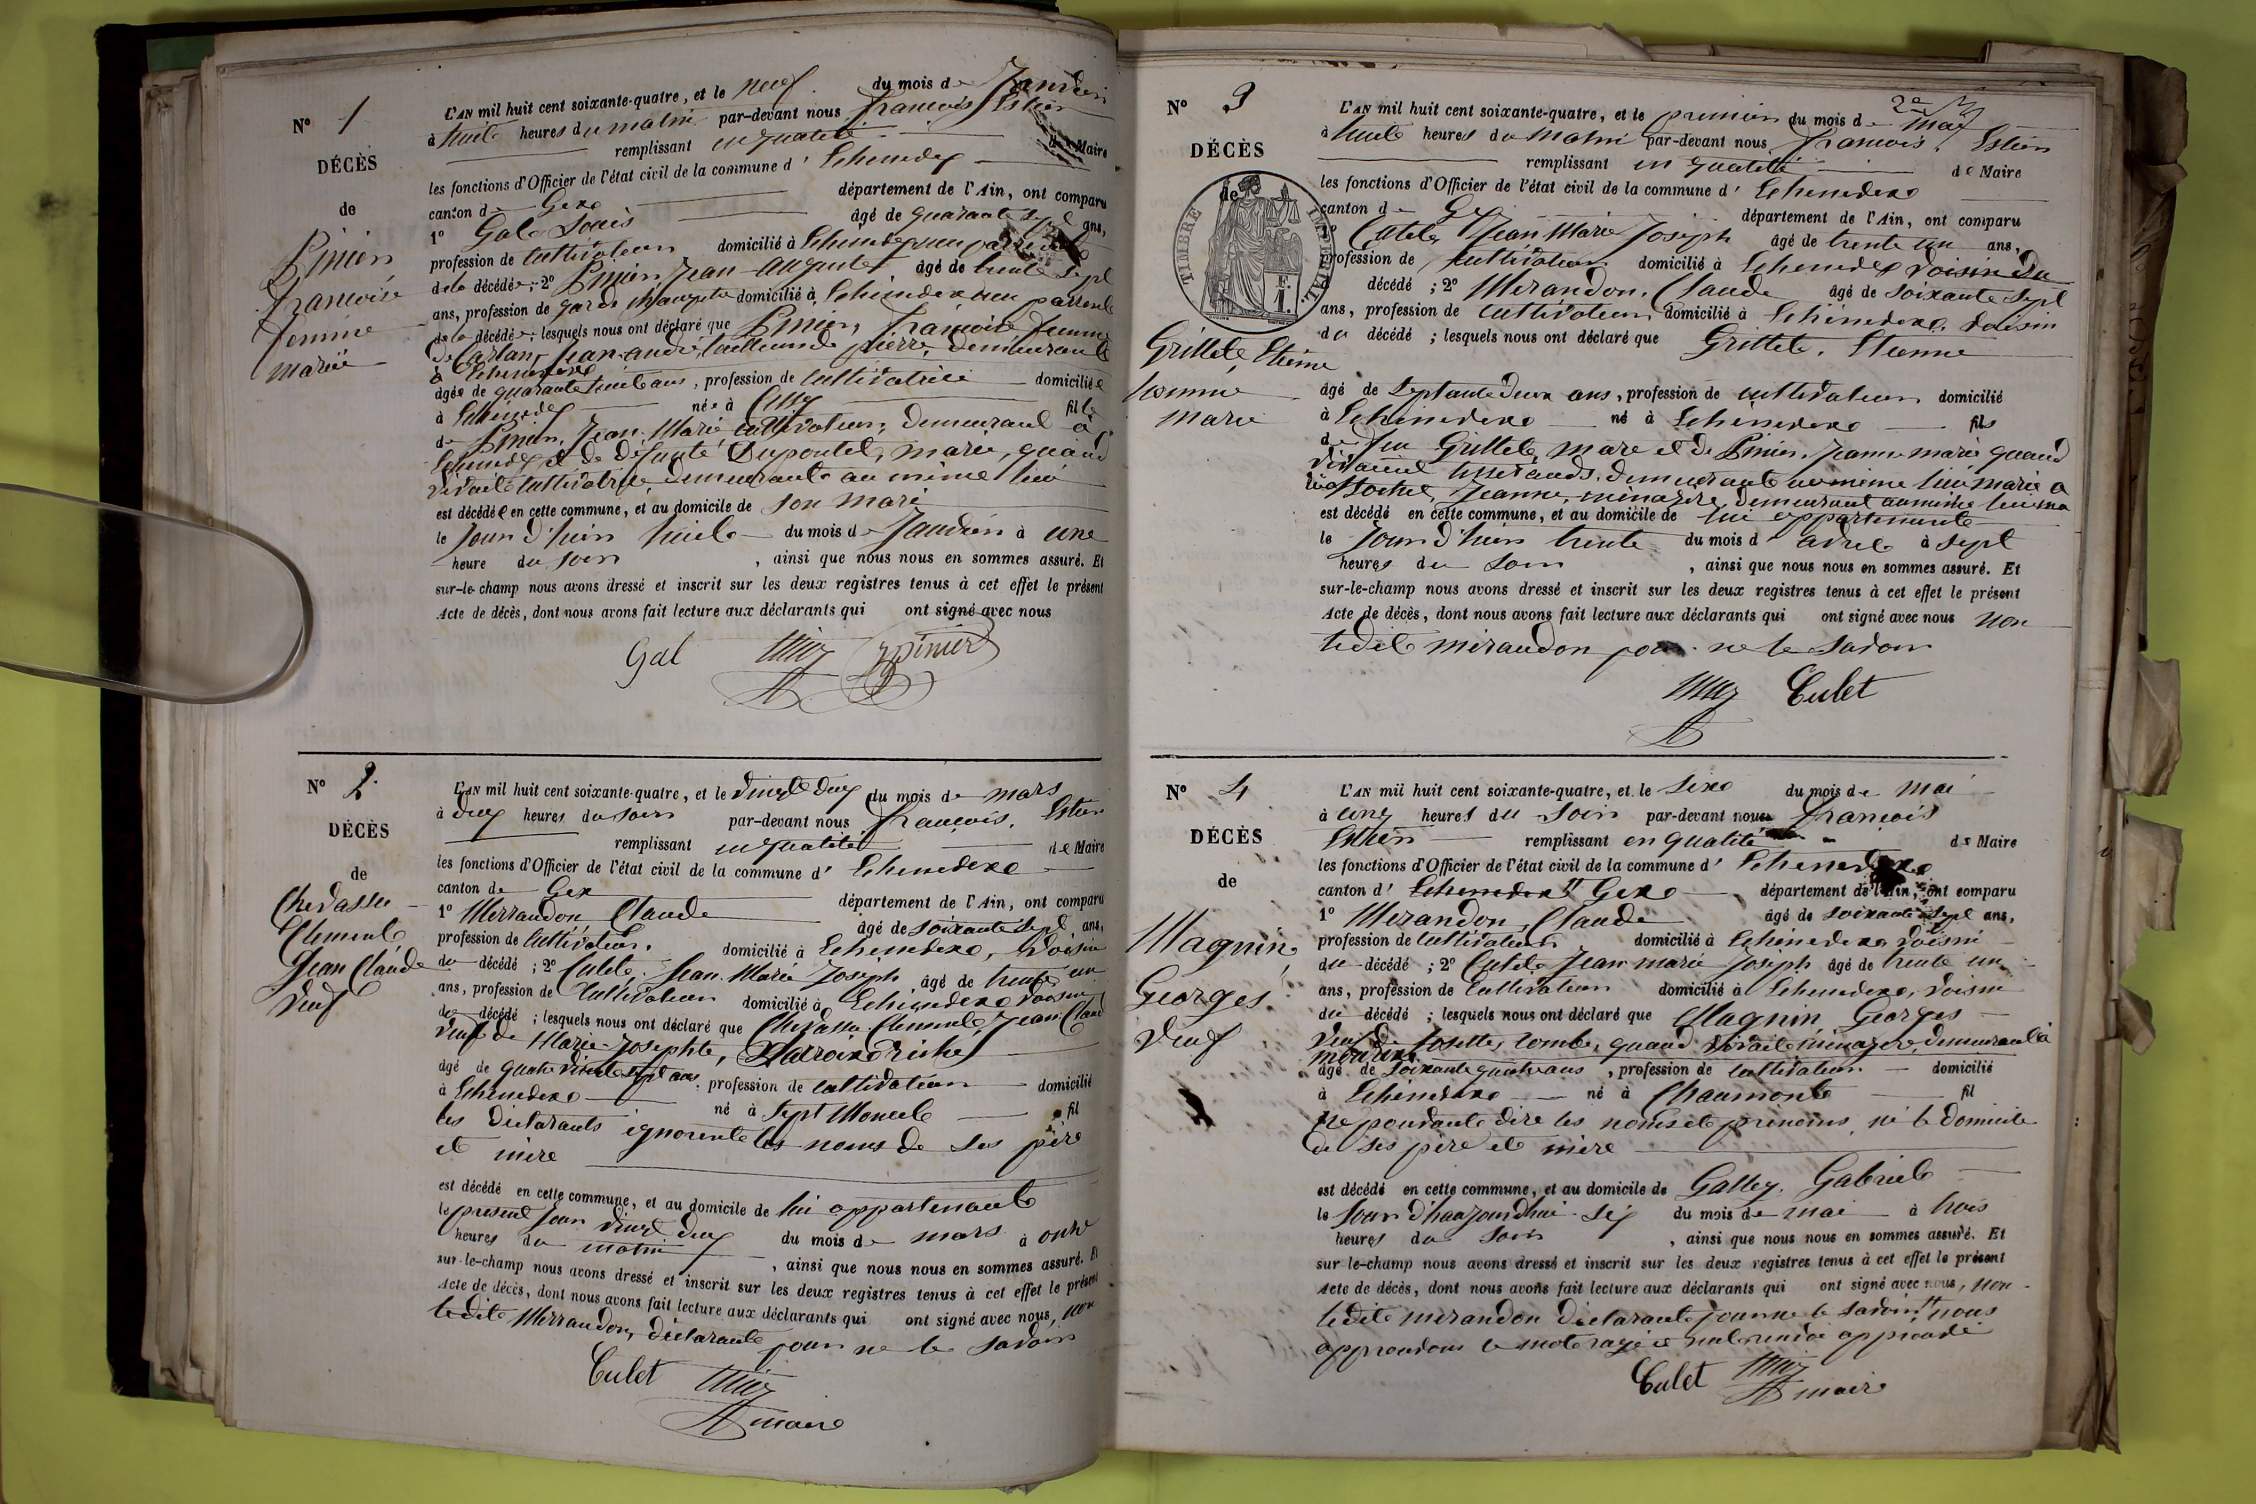 N° 1
DÉCÈS
de
Pinier
françoise
femme
mariée
L'AN mil huit cent soixante-quatre, et le neuf du mois de Janvier
à huit heures du matin par-devant nous françois Estier
remplissant en qualité de Maire
les fonctions d'Officier de l'état civil de la commune d' Echenevex
canton de Gex département de l'Ain, ont comparu
1° Gal Louis âgé de quarante sept ans,
profession de Cultivateur domicilié à Echenevex un parrent
de la décédée ; 2° Pinier Jean-Auguste âgé de trente sept
ans, profession de garde champetre domicilié à Echenevex un parrent
de la décédée ; lesquels nous ont déclaré que Pinier, françoise femme
de Jean-andré demeurant
à Echenevex
âgée de quarante huit ans, profession de Cultivatrice domiciliée
à Echenevex née à fille
de Pinier, Jean-Marie Cultivateur, demeurant à
Echenevex et de défunte Dupontet, marie, quand
vivait Cultivatrice demeurante au même lieu
est décédée en cette commune, et au domicile de son mari
le Jour d'hier huit du mois de Janvier à une
heure du soir , ainsi que nous nous en sommes assuré. Et
sur-le-champ nous avons dressé et inscrit sur les deux registres tenus à cet effet le présent
Acte de décès, dont nous avons fait lecture aux déclarants qui ont signé avec nous
Gal Pinier
N° 2
DÉCÈS
de
Chevassu
Clement
Jean Claude
Veuf
L'AN mil huit cent soixante-quatre, et le vingt deux du mois de mars
à deux heures du soir par-devant nous françois, Estier
remplissant en qualité de Maire
les fonctions d'Officier de l'état civil de la commune d' Echenevex
canton de Gex département de l'Ain, ont comparu
1° Merrandon Claude âgé de soixante sept ans,
profession de Cultivateur. domicilié à Echenevex, voisin
du décédé ; 2° Culet Jean-Marie Joseph âgé de trente un
ans, profession de Cultivateur domicilié à Echenevex voisin
du décédé ; lesquels nous ont déclaré que Chevassu Clement, Jean Claud
veuf de Marie-Josephte,
âgé de quatre vingt sept ans, profession de cultivateur domicilié
à Echenevex né à Sept Moncel fil
les déclarants ignorent les noms de ses père
et mère
est décédé en cette commune, et au domicile de lui appartenant
le présent jour vingt deux du mois de mars à onze
heures du matin , ainsi que nous nous en sommes assuré. Et
sur-le-champ nous avons dressé et inscrit sur les deux registres tenus à cet effet le présent
Acte de décès, dont nous avons fait lecture aux déclarants qui ont signé avec nous, non
ledit Merrandon, déclarant pour ne le savoir
Culet
maire
N° 3
DÉCÈS
de
TIMBRE IMPÉRIAL.
F.
1
Grillet, Etienne
homme
marie
L'AN mil huit cent soixante-quatre, et le premier du mois de mai
à huit heures du matin par-devant nous françois, Estier
remplissant en qualité de Maire
les fonctions d'Officier de l'état civil de la commune d' Echenevex
canton de Gex département de l'Ain, ont comparu
1° Culet Jean Marie Joseph âgé de trente un ans,
profession de Cultivateur domicilié à Echenevex voisin du
décédé ; 2° Merandon, Claude âgé de soixante sept
ans, profession de Cultivateur domicilié à Echenevex, voisin
du décédé ; lesquels nous ont déclaré que Grillet, Etienne
âgé de septante deux ans, profession de cultivateur domicilié
à Echenevex né à Echenevex fils
de feu Grillet, marc et de Pinier, Jeanne marie quand
vivaient tisserands, demeurants au même lieu marié a
Jeanne, ménagère, demeurant au même lieu
est décédé en cette commune, et au domicile de lui appartenant
le Jour d'hier trente du mois d' avril à sept
heures du soir , ainsi que nous nous en sommes assuré. Et
sur-le-champ nous avons dressé et inscrit sur les deux registres tenus à cet effet le présent
Acte de décès, dont nous avons fait lecture aux déclarants qui ont signé avec nous non
ledit merandon pour ne le savoir
Culet
N° 4
DÉCÈS
de
Magnin,
Georges
Veuf
L'AN mil huit cent soixante-quatre, et le sixe du mois de mai
à cinq heures du soir par-devant nous françois
Estier remplissant en qualité de Maire
les fonctions d'Officier de l'état civil de la commune d' Echenevex
canton d' Echenevex Gex département de l'Ain, ont comparu
1° Merandon, Claude âgé de soixante sept ans,
profession de Cultivateur domicilié à Echenevex, voisin
du décédé ; 2° Culet Jean marie Joseph âgé de trente un
ans, profession de Cultivateur domicilié à Echenevex, voisin
du décédé ; lesquels nous ont déclaré que Magnin Georges
veuf de Josette, quand vivait ménagère, demeurant à
âgé de soixante quatre ans, profession de cultivateur domicilié
à Echenevex né à Chaumont fil
ne pouvant dire les noms et prénoms, ni le domicile
de ses père et mère
est décédé en cette commune, et au domicile de Galley, Gabriel
le Jour d'haujourdhui six du mois de mai à trois
heures du soir , ainsi que nous nous en sommes assuré. Et
sur-le-champ nous avons dressé et inscrit sur les deux registres tenus à cet effet le présent
Acte de décès, dont nous avons fait lecture aux déclarants qui ont signé avec nous, non
ledit merandon déclarant pour ne le savoir nous
approuvons le mot rayé
Culet
maire